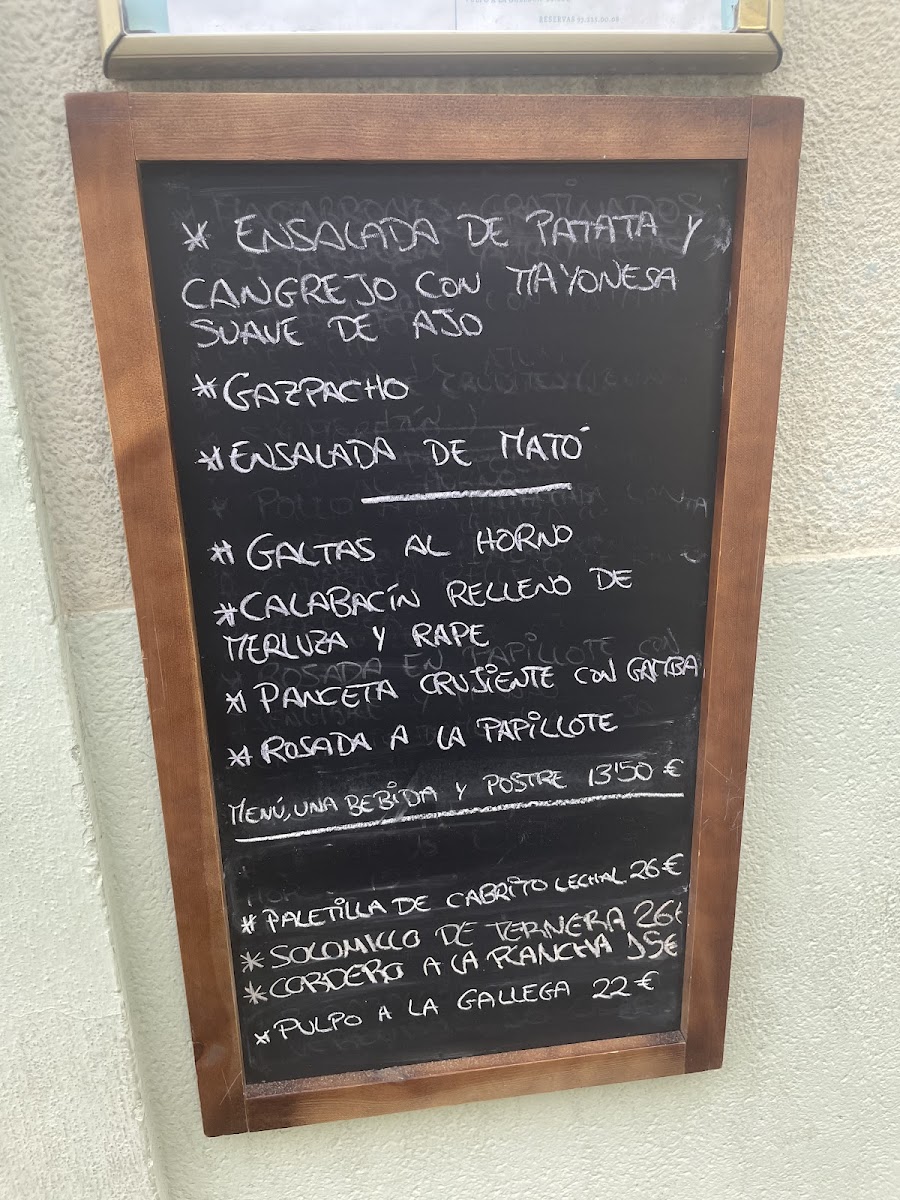 * ENSALADA DE PATATA Y
CANGREJO CON MAYONESA
SUAVE DE AJO
* GAZPACHO
* ENSALADA DE MATÓ
* GALTAS AL HORNO
* CALABACÍN RELLENO DE
MERLUZA Y RAPE
* PANCETA CRUJIENTE CON GAMBA
* ROSADA A LA PAPILLOTE
MENÚ, UNA BEBIDA Y POSTRE 13'50 €
* PALETILLA DE CABRITO LECHAL 26 €
* SOLOMILLO DE TERNERA 26€
* CORDERO A LA PLANCHA 15€
* PULPO A LA GALLEGA 22 €